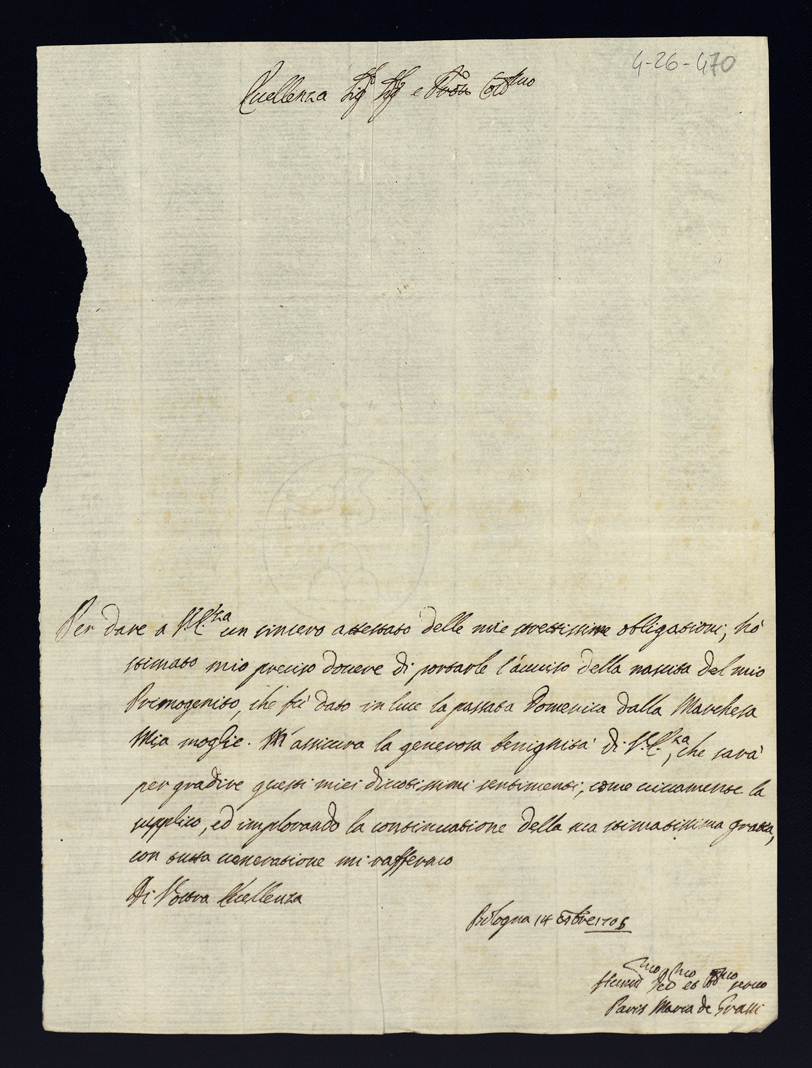 4-26-470
Eccellenza Sig.r Sig.r e Pron Col.mo
Per dare a V.E.za un sincero attestato delle mie strettissime obligazioni, hò
stimato mio preciso douere di portarle l'auuiso della nascita del mio
Primogenito, che fù dato in luce la passata Domenica dalla Marchesa
Mia moglie. M'assicura la generosa benignità di V.E.za, che sarà
per gradire questi miei diuotissimi sentimenti, come uiuamente la
supplico, ed implorando la continuazione della sua stimatissima grazia,
con tutta uenerazione mi raffermo
Di Vostra Eccellenza
Bologna 14 8bre 1708
Deuo et Obmo seruo
Paris Maria de Grassi